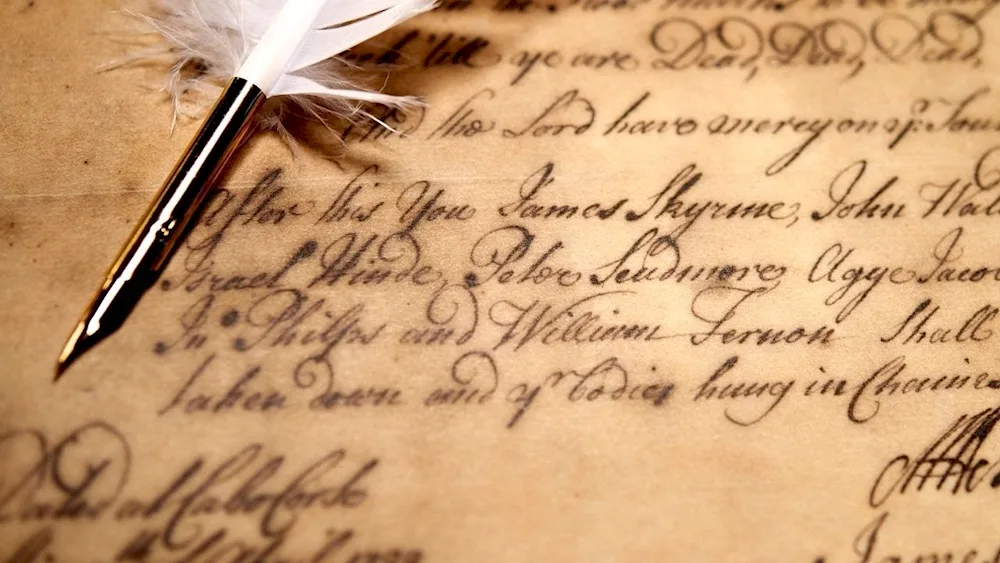 till ye are Dead, Dead, Dead,
And the Lord have mercy on yr. Sou
After this You James Skyrme, John Wal
Israel Hinde, Peter Scudmore, Agge Jacob
Jn. Philps and William Fernon Shall
taken down and yr bodies hung in Chaines
Dated at Cabo Corso
James